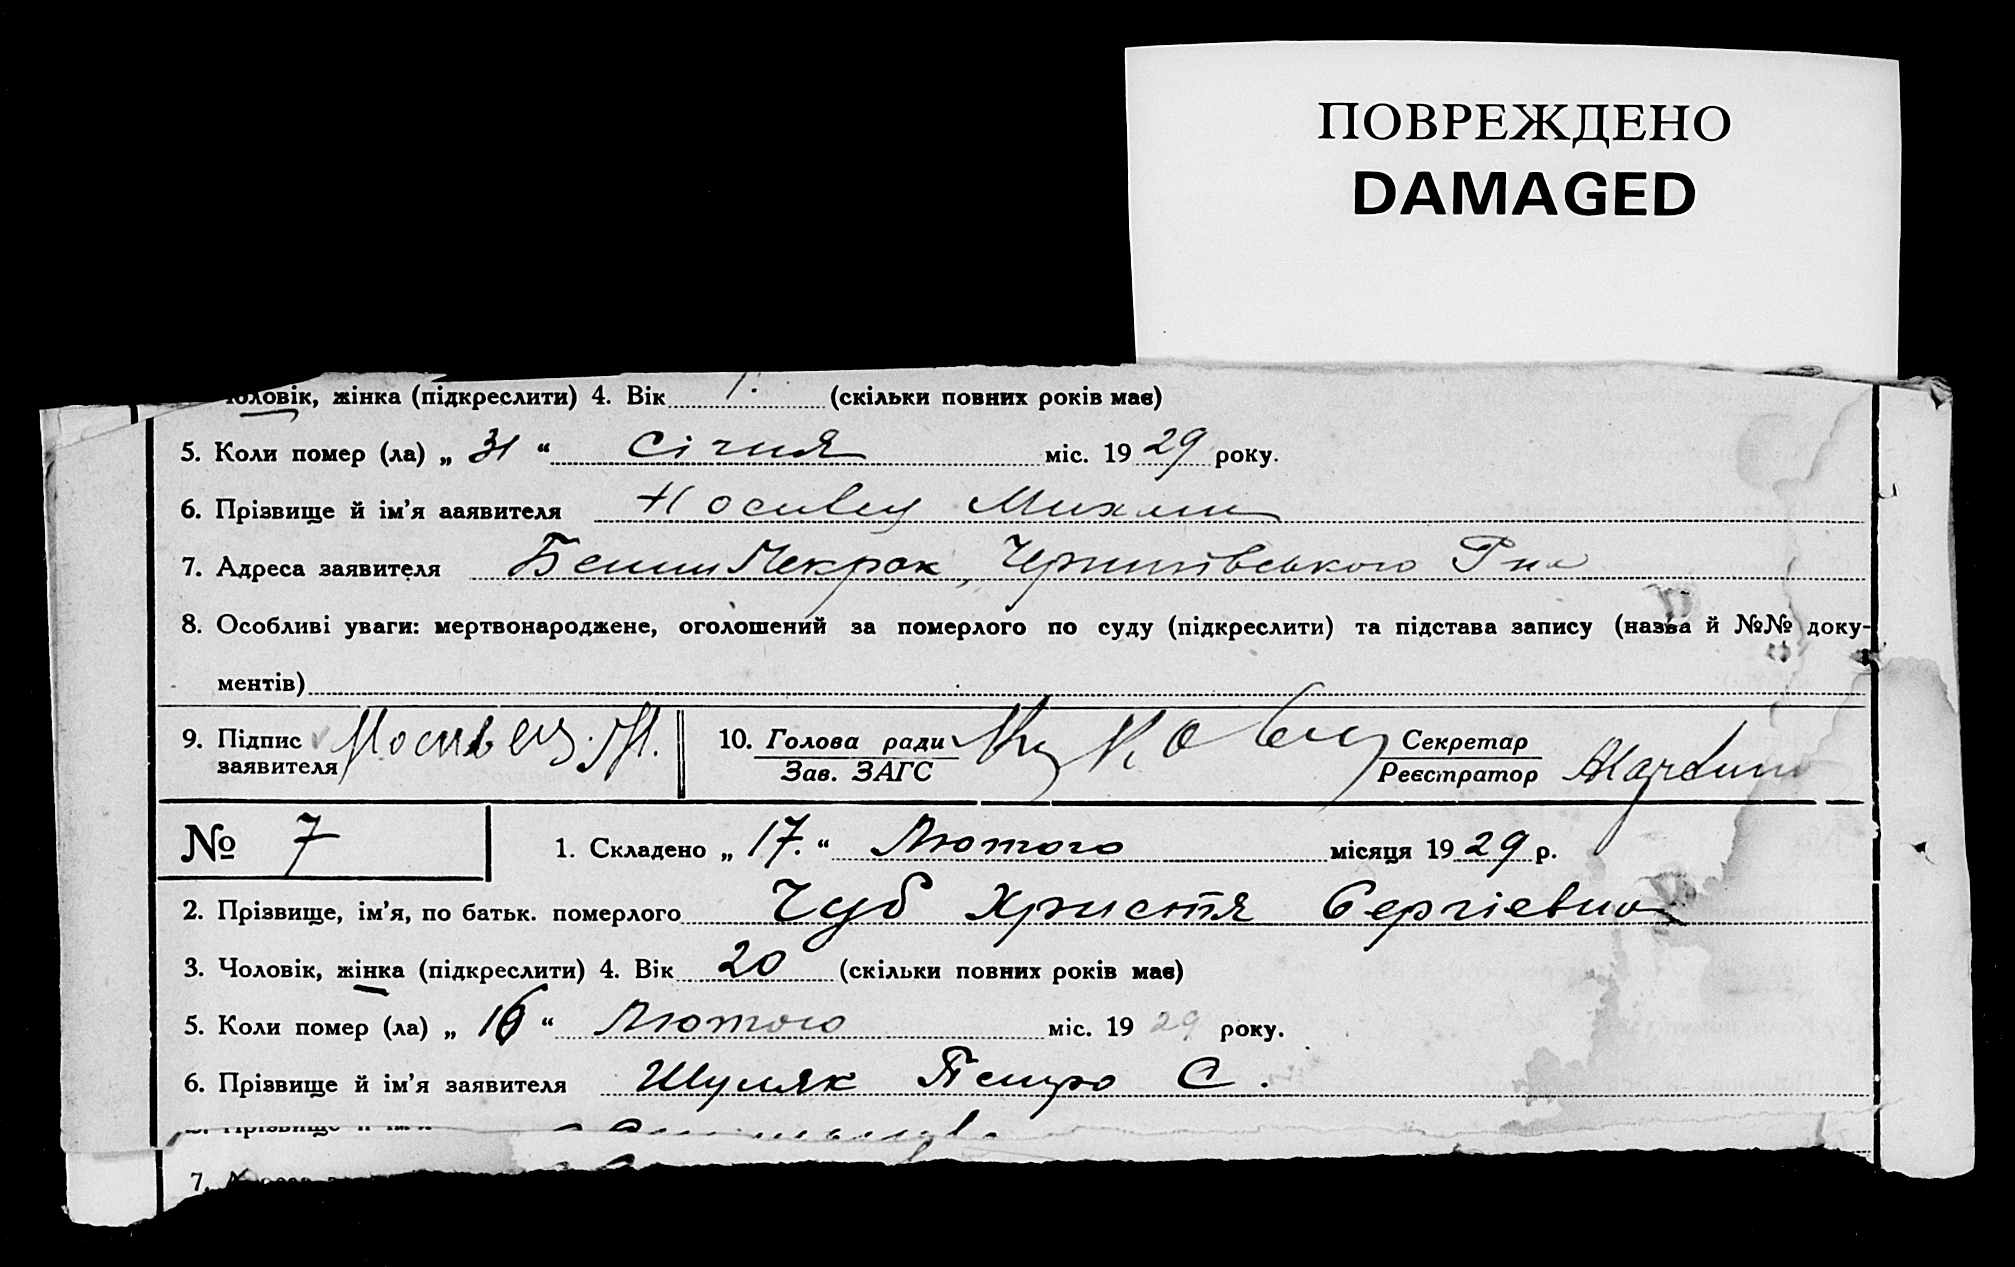 ПОВРЕЖДЕНО
DAMAGED
Чоловік, жінка (підкреслити) 4. Вік (скільки повних років має)
5. Коли помер (ла) „ 31 “ Січня міс. 19 29 року.
6. Прізвище й ім'я заявителя Носивец
7. Адреса заявителя Чернигівського Р на
8. Особливі уваги: мертвонароджене, оголошений за померлого по суду (підкреслити) та підстава запису (назва й №№ доку-
ментів)
9. Підпис Носивец. М. 10. Голова ради Секретар
заявителя Зав. ЗАГС Реєстратор
№ 7 1. Складено „ 17. “ Лютого місяця 19 29 р.
2. Прізвище, ім'я, по батьк. померлого Чуб Христя Сергієвна
3. Чоловік, жінка (підкреслити) 4. Вік 20 (скільки повних років має)
5. Коли помер (ла) „ 16 “ Лютого міс. 19 29 року.
6. Прізвище й ім'я заявителя Шуляк Петро С.
7.